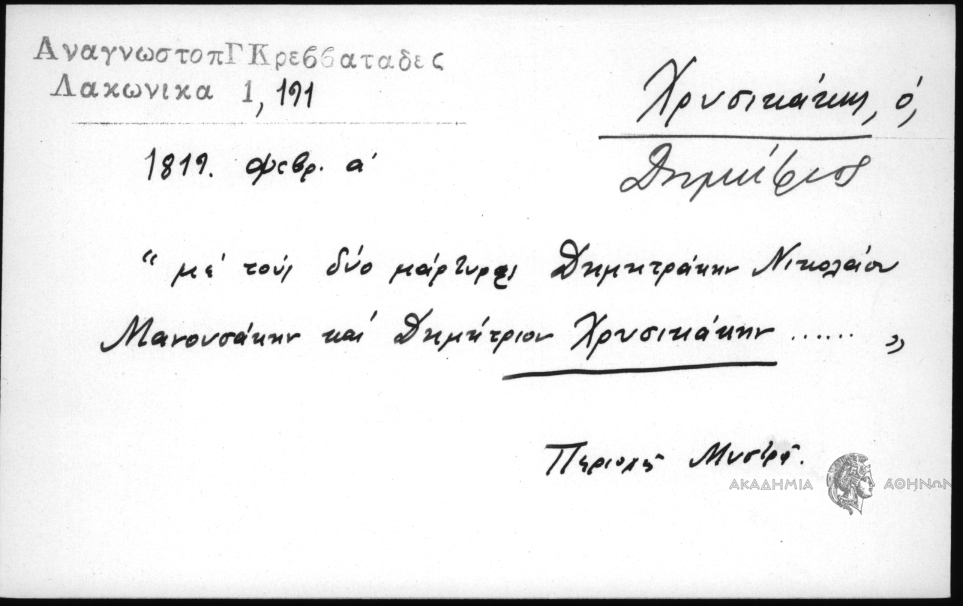 ΑναγνωστοπΓΚρεββαταδες
Λακωνικα 1, 191
Χρυσικάκης, ὁ,
Δημήτριος
1819. Φεβρ. α'
"μέ τούς δύο μάρτυρας Δημητράκην Νικολάου
Μανουσάκην καί Δημήτριον Χρυσικάκην ......"
Περιοχή Μυστρᾶ.
ΑΚΑΔΗΜΙΑ ΑΘΗΝΩΝ